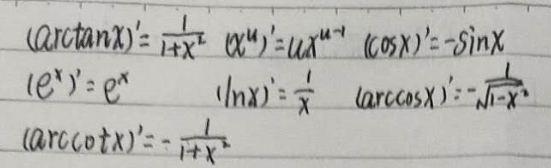 (arctanx)'=1/(1+x²) (x^u)'=ux^(u-1) (cosx)'=-sinx
(e^x)'=e^x (lnx)'=1/x (arccosx)'=-1/√(1-x²)
(arccotx)'=-1/(1+x²)